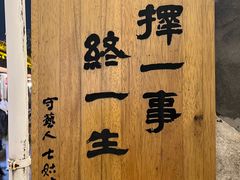 擇一事
終一生
守藝人 七